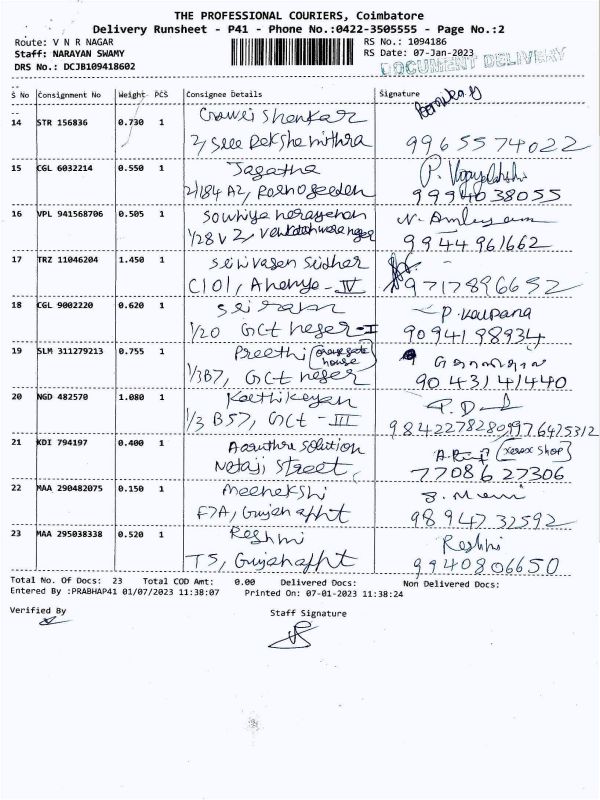 THE PROFESSIONAL COURIERS, Coimbatore
Delivery Runsheet - P41 - Phone No.:0422-3505555 - Page No.:2
Route: V N R NAGAR
RS No.: 1094186
Staff: NARAYAN SWAMY
RS Date: 07-Jan-2023
DRS No.: DCJB109418602
DOCUMENT DELIVERY
S No Consignment No Weight PCS Consignee Details Signature
14 STR 156836 0.730 1 Shenkar
2, Sree
9965574022
15 CGL 6032214 0.550 1 Jagatha P.
2/184 A2,
9994038055
16 VPL 941568706 0.505 1 Sowmya narayanan N.
1/28 V 2, nagar
9944961662
17 TRZ 11046204 1.450 1 Srinivasan Sridhar
C101, Ananya - IV 9717896652
18 CGL 9002220 0.620 1 Sriram P. Kalpana
1/20 GCT nagar - I 9094198934
19 SLM 311279213 0.755 1 Preethi house
1/3B7, GCT nagar 9043141440
20 NGD 482570 1.080 1 Karthikeyan
1/3 B57, GCT - III 9842278280 9976475312
21 KDI 794197 0.400 1 Solution (xerox shop)
Netaji Street, 7708627306
22 MAA 290482075 0.150 1 Meenakshi S. Mani
F7A, Gujan appt 9894732592
23 MAA 295038338 0.520 1 Reshmi Reshmi
T5, Gujan appt 9940806650
Total No. Of Docs: 23 Total COD Amt: 0.00 Delivered Docs: Non Delivered Docs:
Entered By :PRABHAP41 01/07/2023 11:38:07 Printed On: 07-01-2023 11:38:24
Verified By
Staff Signature